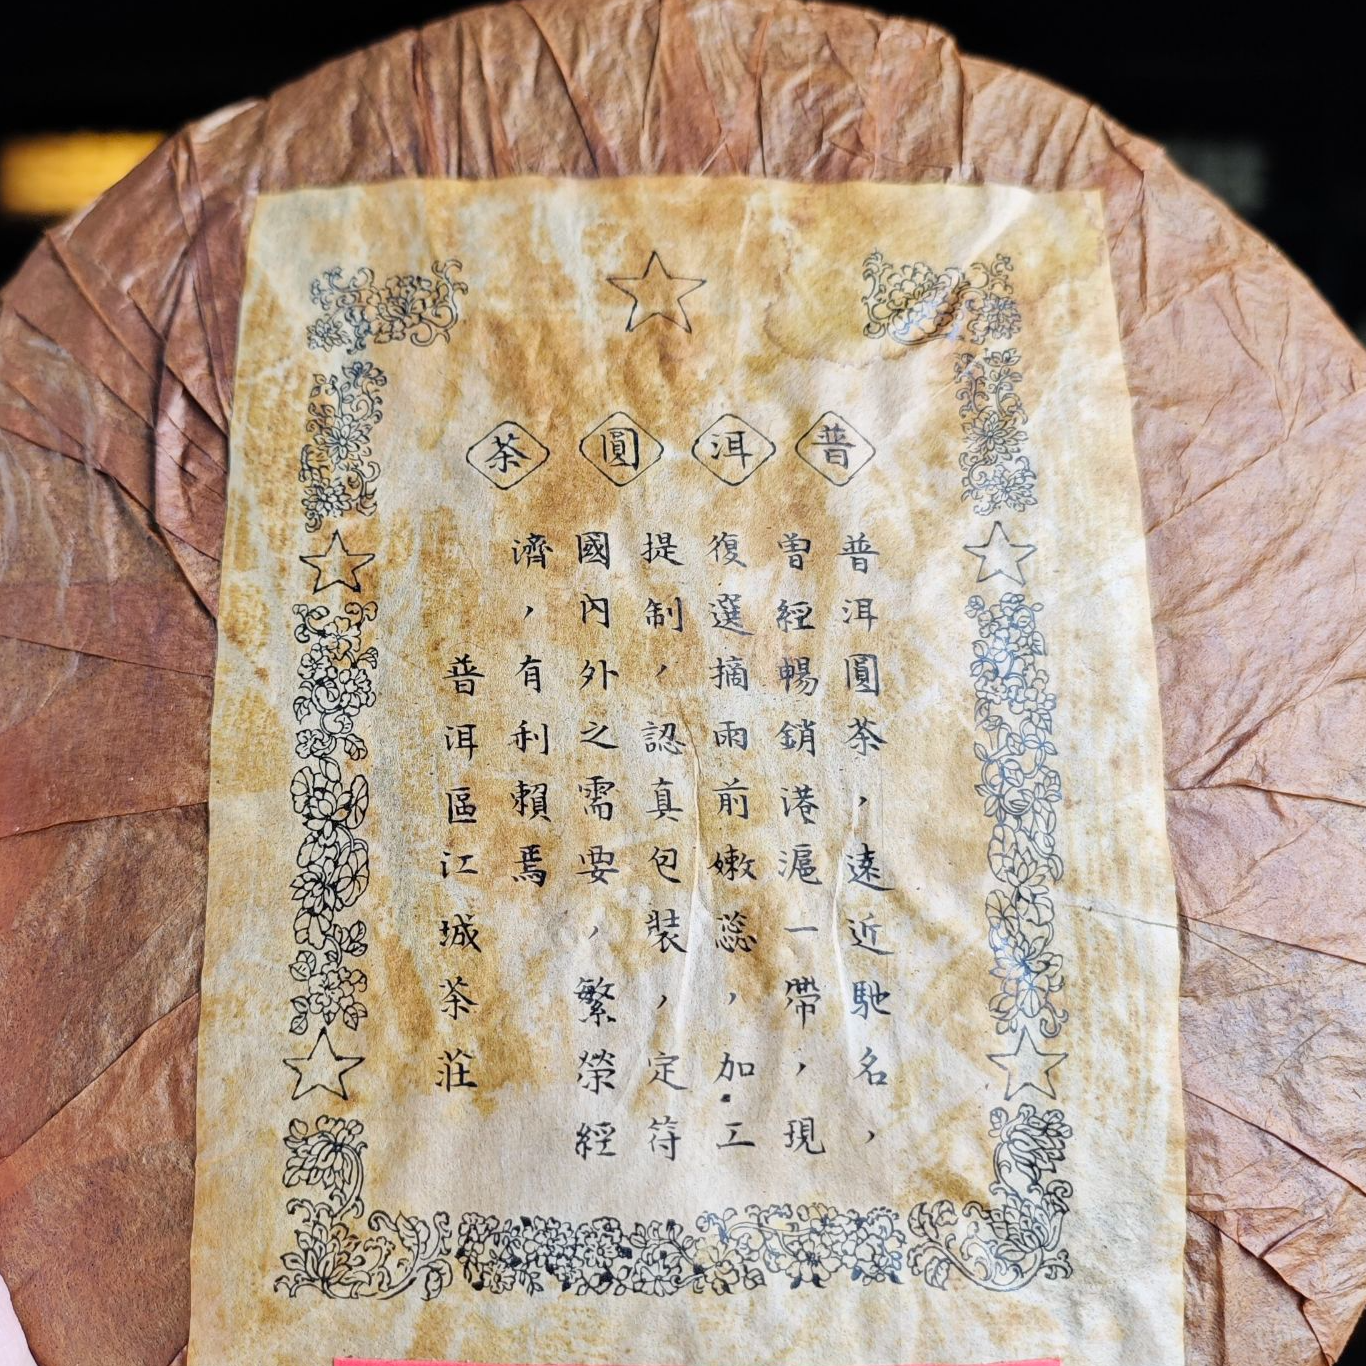 普洱圓茶
普洱圓茶，遠近馳名，
曾經暢銷港滬一帶，現
復選摘雨前嫩蕊，加工
提制，認真包裝，定符
國內外之需要，繁榮經
濟，有利賴焉
普洱區江城茶莊